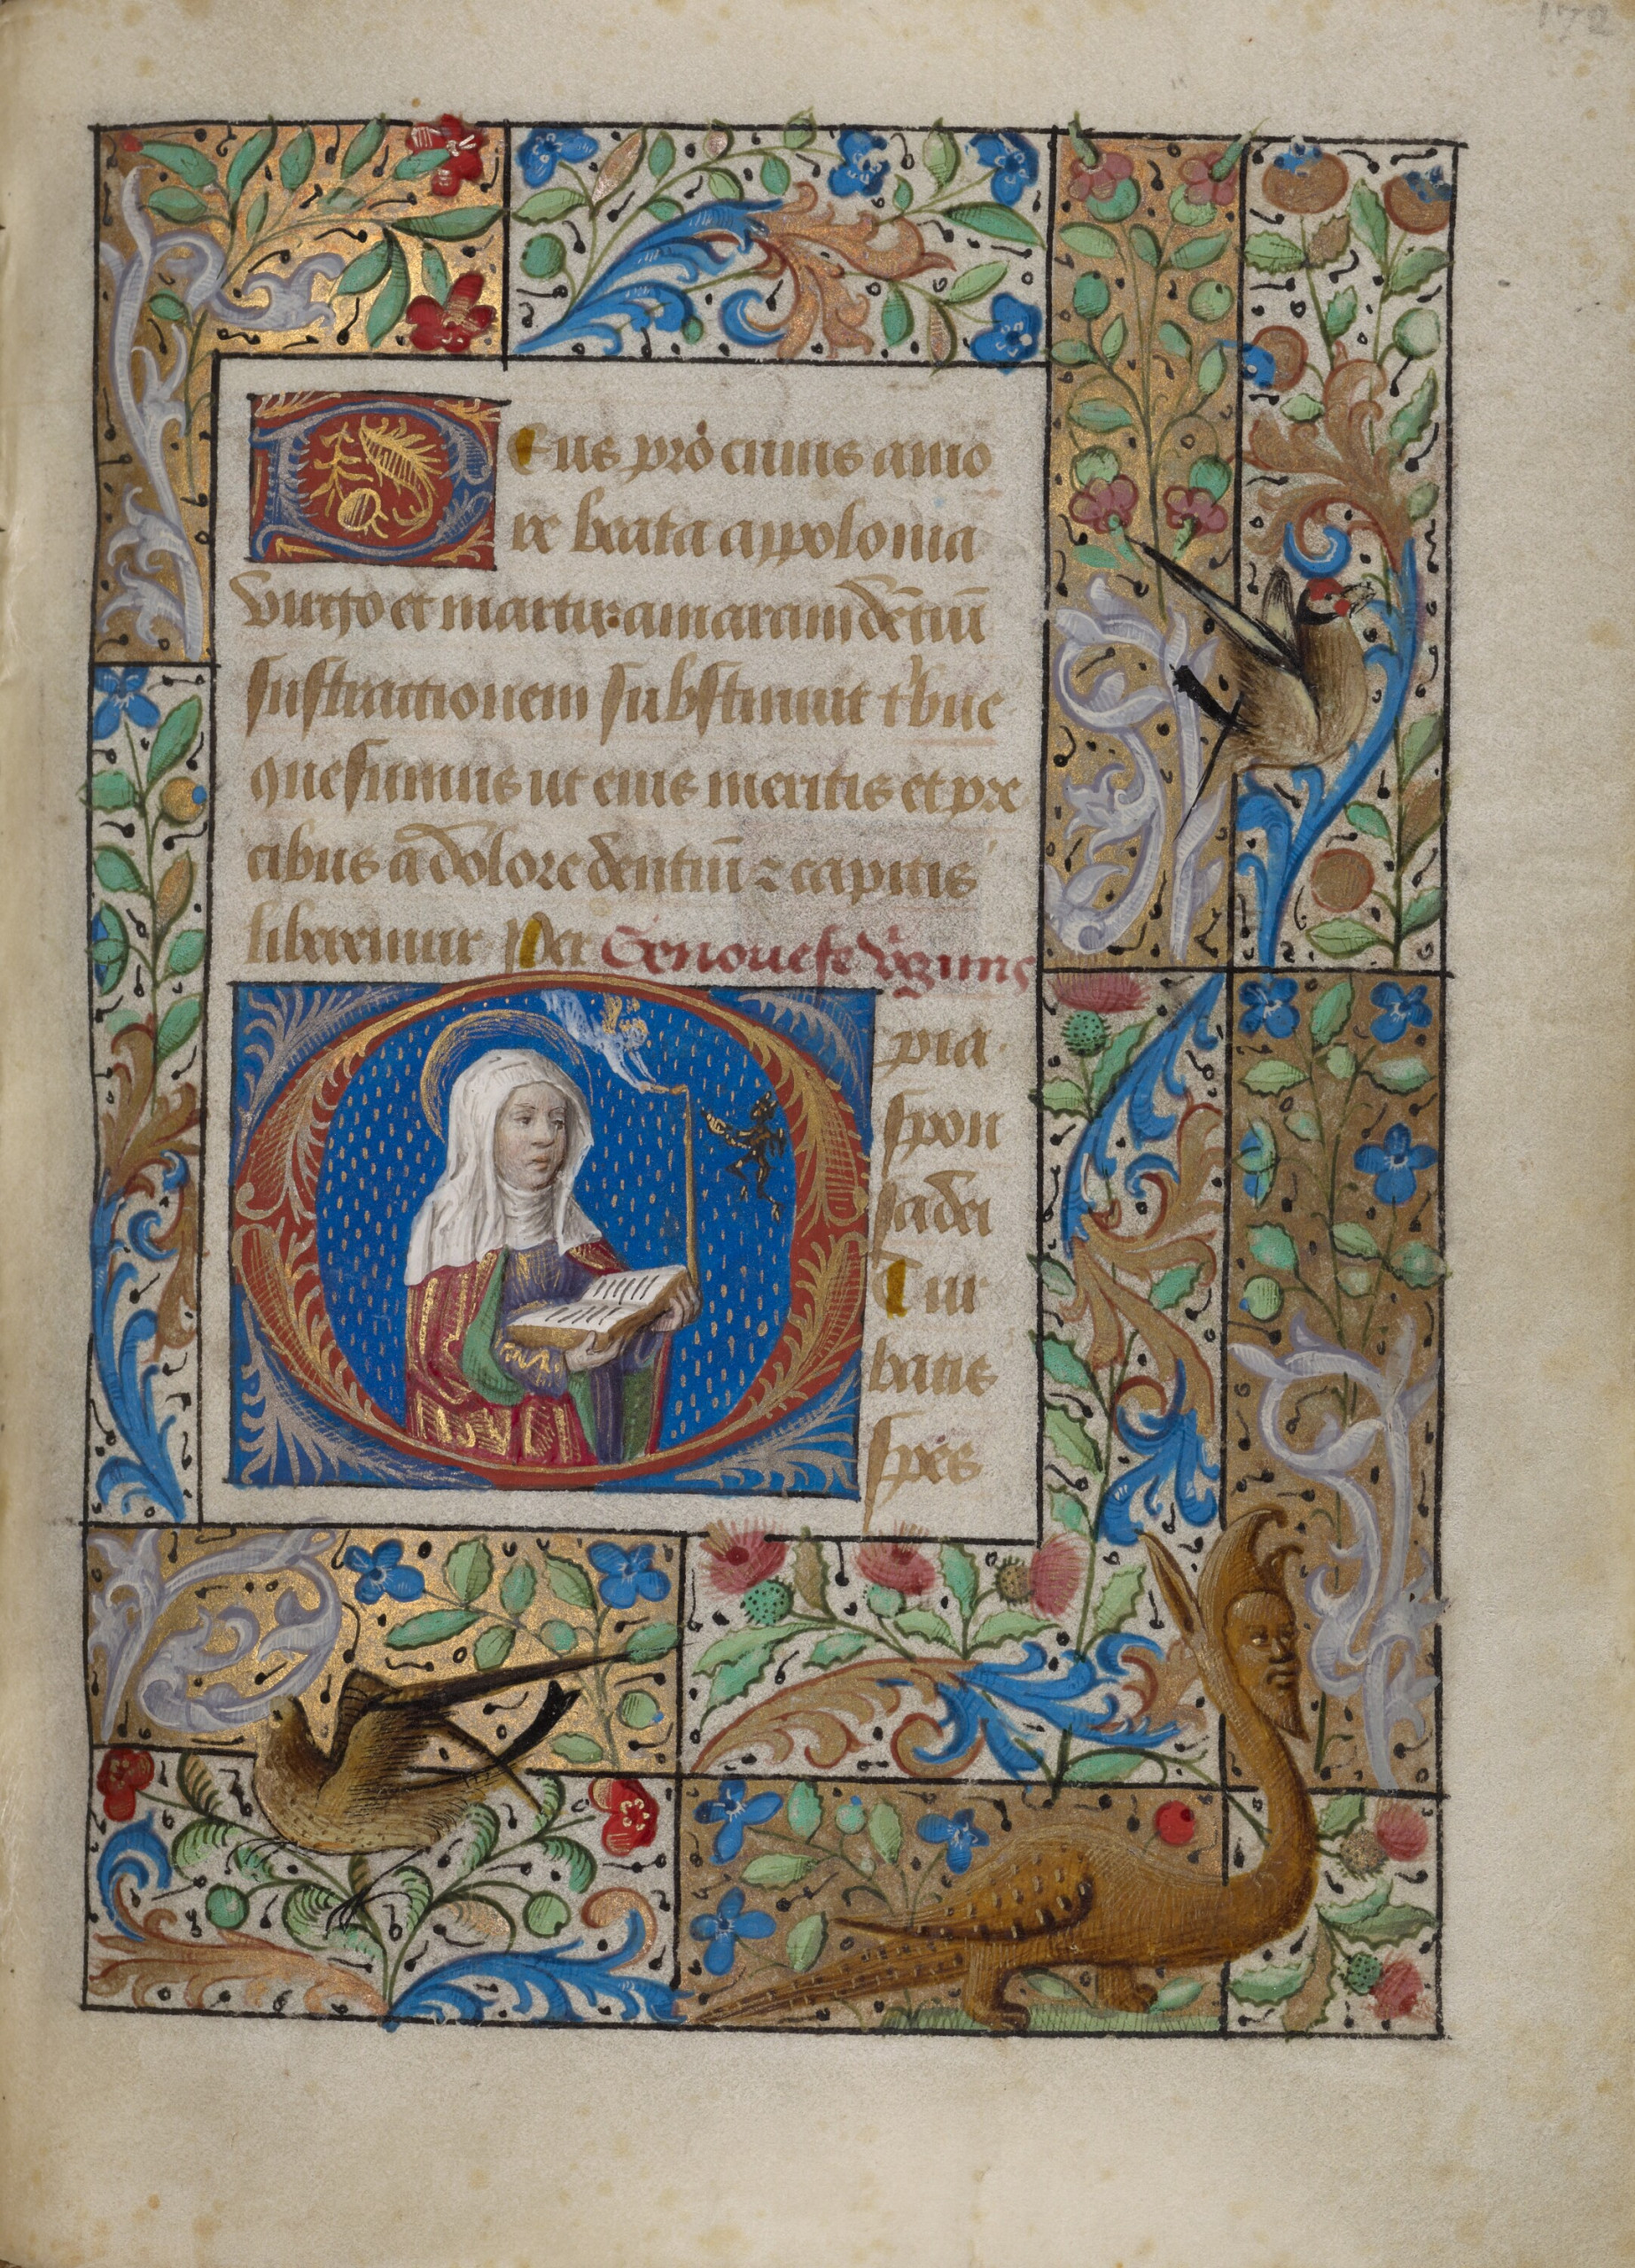 172
Deus pro cuius amo
re beata appolonia
virgo et martir amaram dētiū
sustractionem substinuit t'bue
quesumus ut eius meritis et pre
cibus a dolore dentiū ⁊ capitis
liberemur Per Genouefe v'ginis
O pia
spon
sa dei
Tur
batis
spes